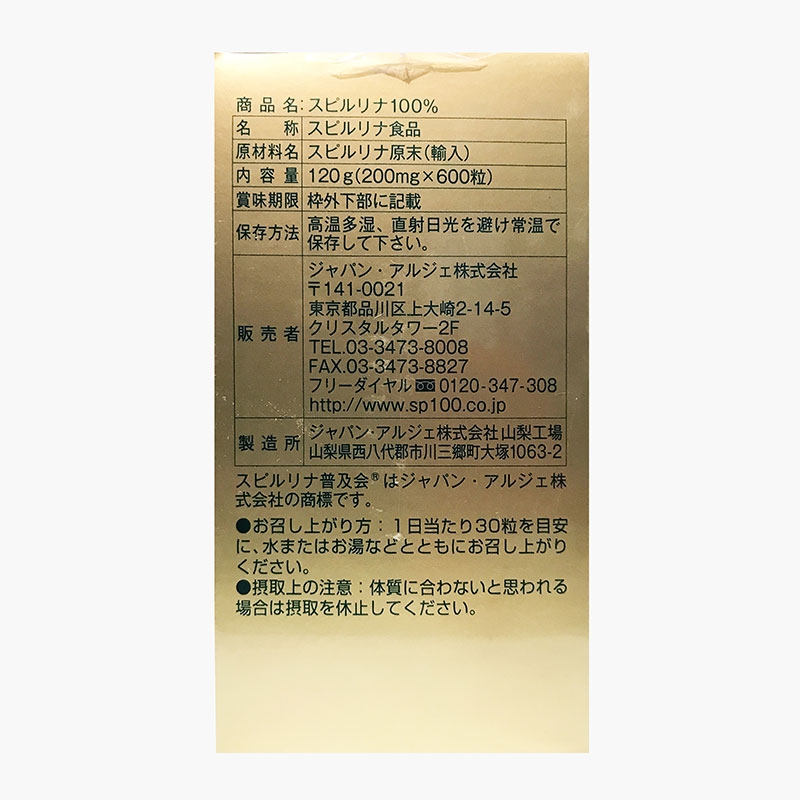 商品名：スピルリナ100%
名称 スピルリナ食品
原材料名 スピルリナ原末（輸入）
内容量 120g（200mg×600粒）
賞味期限 枠外下部に記載
保存方法 高温多湿、直射日光を避け常温で
保存して下さい。
販売者 ジャパン・アルジェ株式会社
〒141-0021
東京都品川区上大崎2-14-5
クリスタルタワー2F
TEL.03-3473-8008
FAX.03-3473-8827
フリーダイヤル 0120-347-308
http://www.sp100.co.jp
製造所 ジャパン・アルジェ株式会社 山梨工場
山梨県西八代郡市川三郷町大塚1063-2
スピルリナ普及会®はジャパン・アルジェ株
式会社の商標です。
●お召し上がり方：1日当たり30粒を目安
に、水またはお湯などとともにお召し上がり
ください。
●摂取上の注意：体質に合わないと思われる
場合は摂取を休止してください。